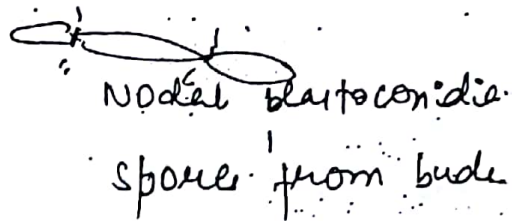 Nodal blastoconidia.
spore from bude